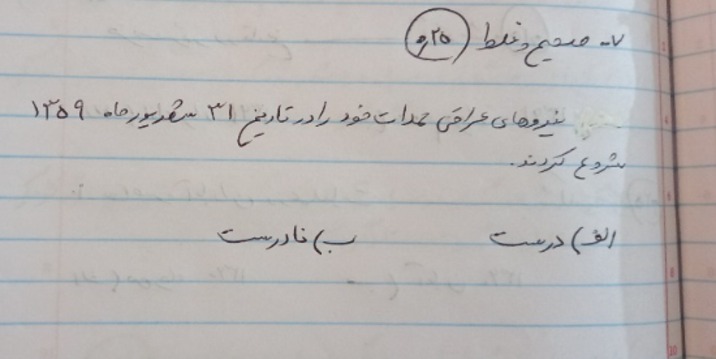 ۷- صحیح و غلط (۰٫۲۵)
نیروهای عراقی حملات خود را در تاریخ ۳۱ شهریور ماه ۱۳۵۹
شروع کردند.
الف) درست ب) نادرست